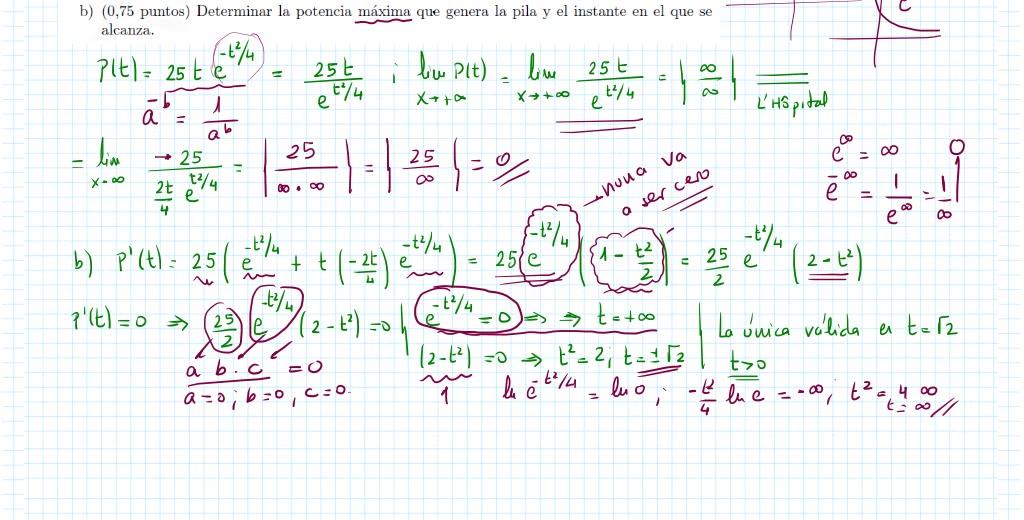 b) (0,75 puntos) Determinar la potencia máxima que genera la pila y el instante en el que se
alcanza.
P(t) = 25 t e^{-t²/4} = 25t / e^{t²/4} ; lim P(t) x→+∞ = lim x→+∞ 25t / e^{t²/4} = | ∞/∞ | = L'Hôpital
a^{-b} = 1/a^b
= lim x→∞ 25 / (2t/4 e^{t²/4}) = | 25 / ∞·∞ | = | 25/∞ | = 0
e^∞ = ∞
e^{-∞} = 1/e^∞ = 1/∞ 0
nunca va
a ser cero
b) P'(t) = 25 ( e^{-t²/4} + t (-2t/4) e^{-t²/4} ) = 25 e^{-t²/4} ( 1 - t²/2 ) = 25/2 e^{-t²/4} ( 2 - t² )
P'(t) = 0 ⇒ 25/2 e^{-t²/4} (2 - t²) = 0 | e^{-t²/4} = 0 ⇒ ⇒ t = +∞
(2 - t²) = 0 ⇒ t² = 2; t = ±√2
La única válida es t = √2
t > 0
a b · c = 0
a = 0; b = 0, c = 0.
1
ln e^{-t²/4} = ln 0 ; -t²/4 ln e = -∞; t² = 4 ∞
t = ∞